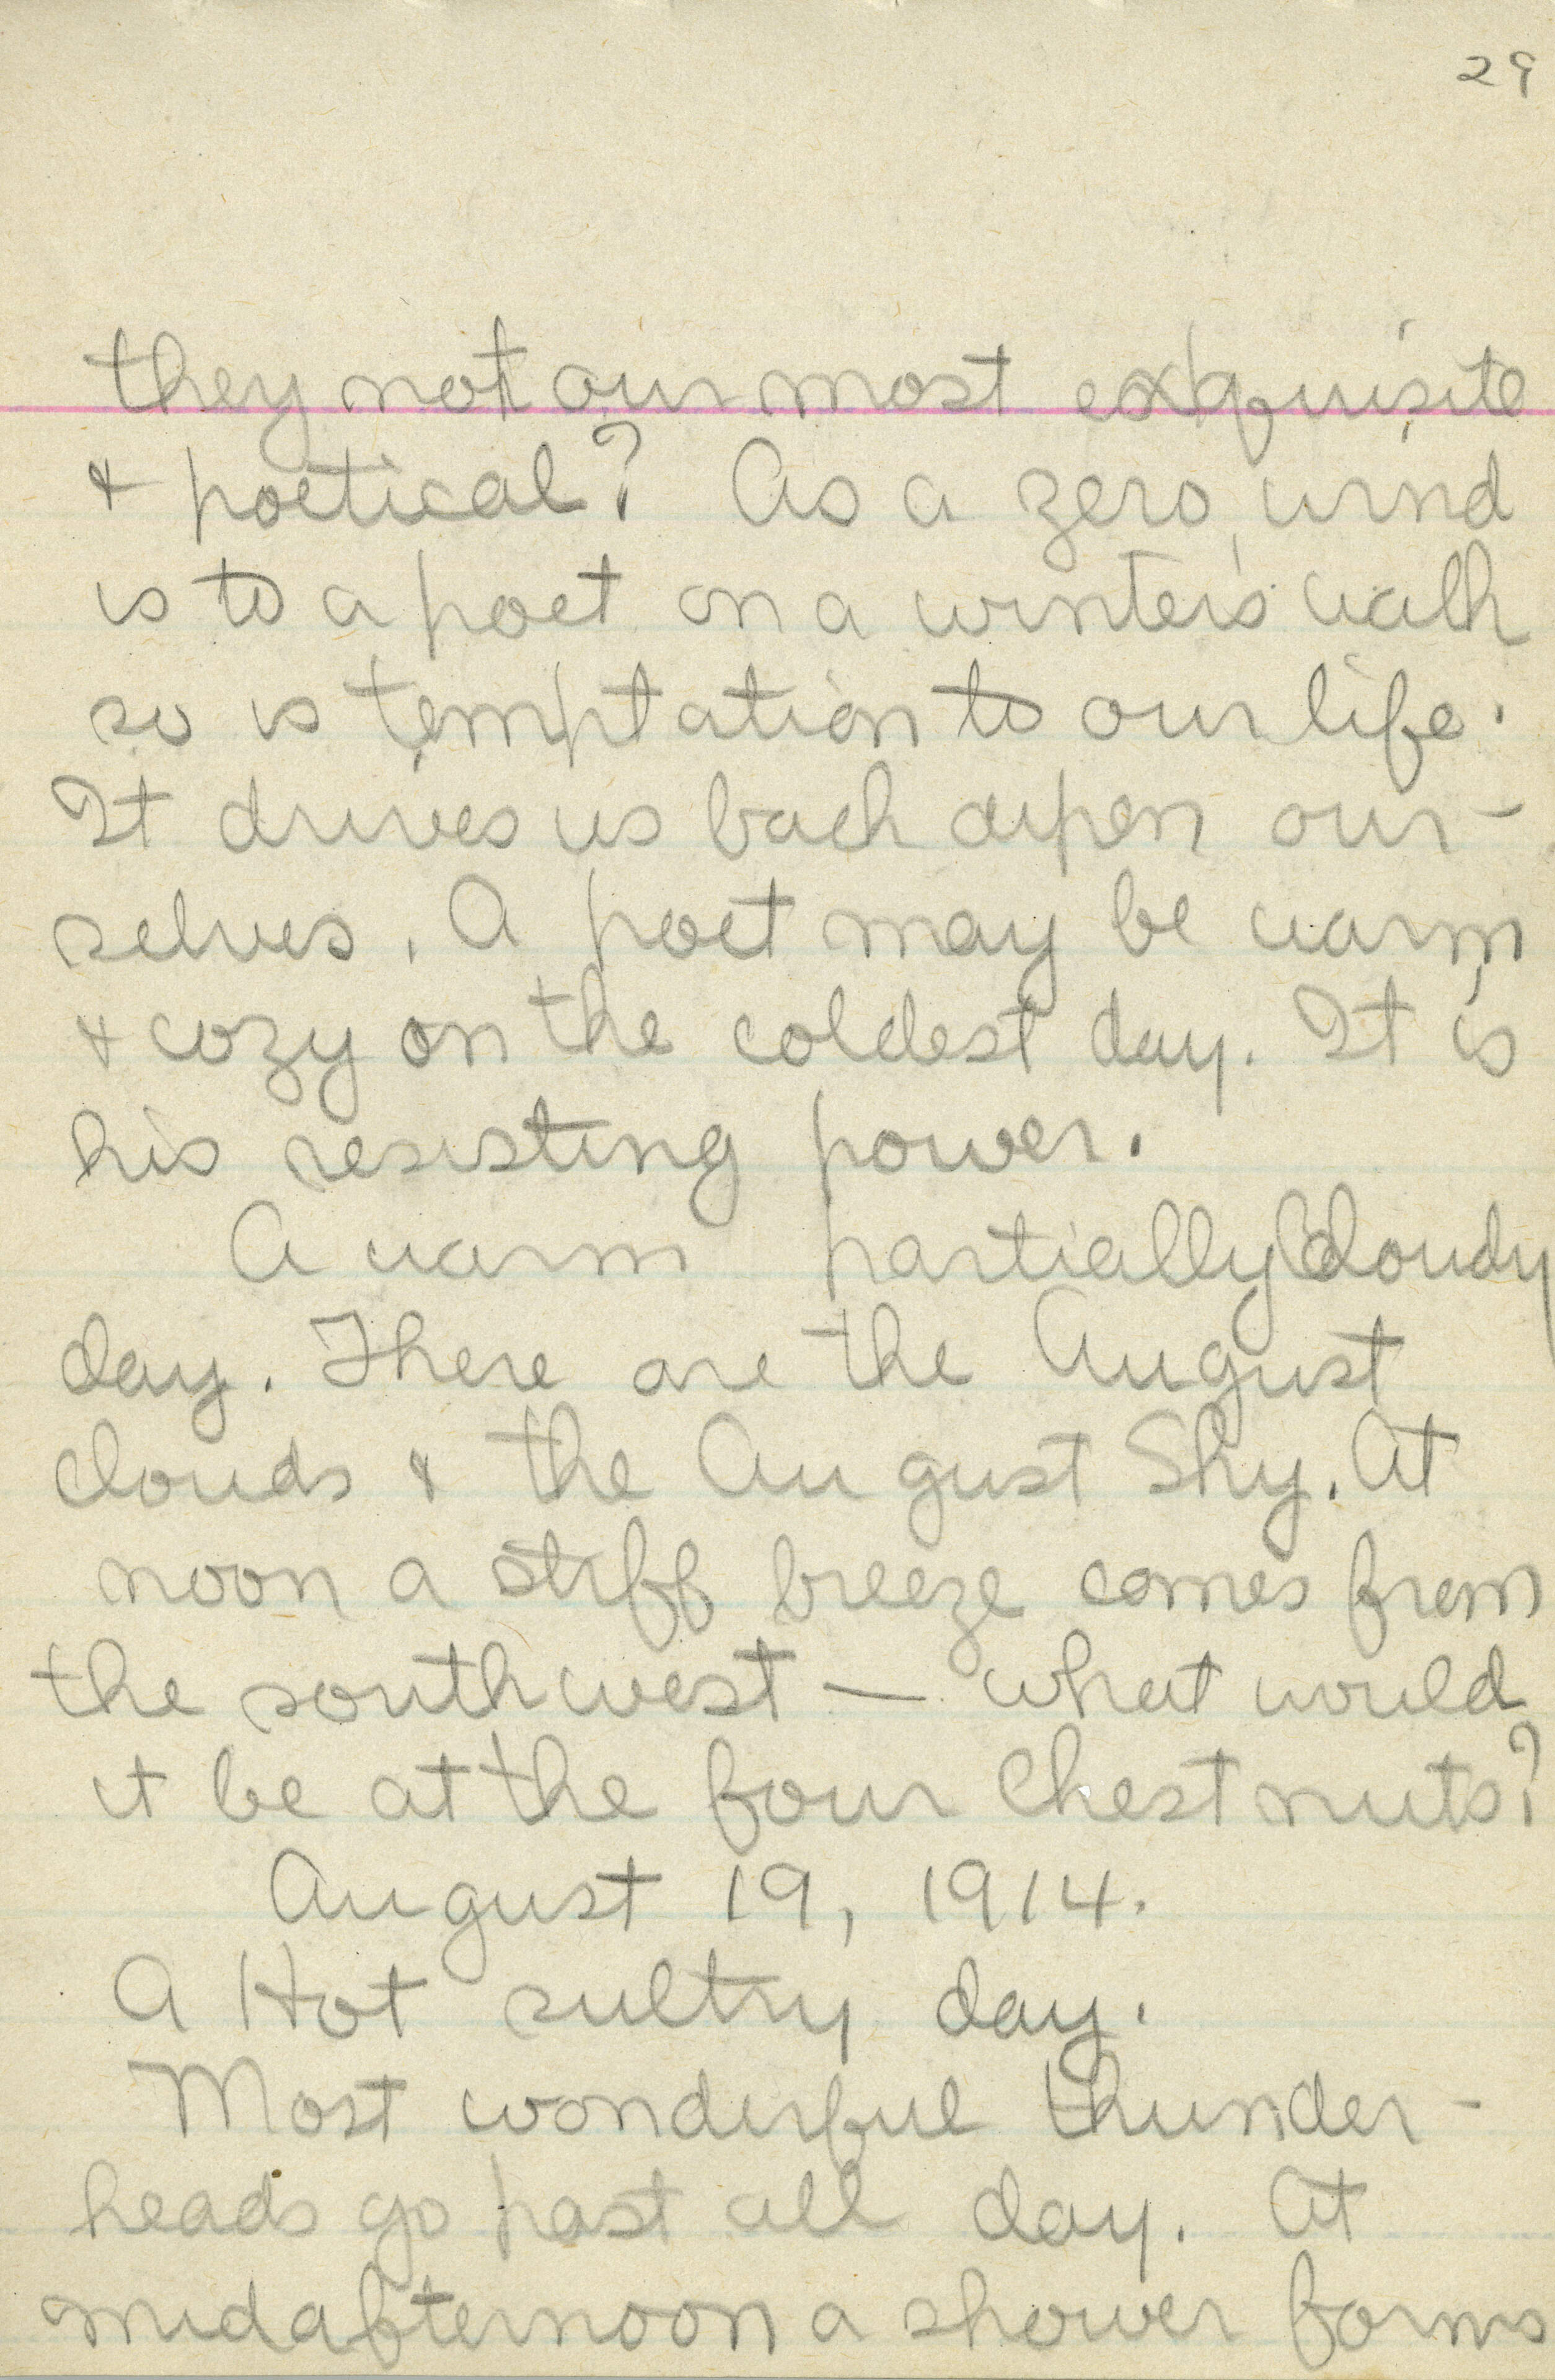 29
they not our most exquisite
& poetical? As a zero wind
is to a poet on a winter's walk
so is temptation to our life.
It drives us back upon our-
selves. A poet may be warm
& cozy on the coldest day. It is
his resisting power.
A warm partially cloudy
day. There are the August
clouds & the August Sky. At
noon a stiff breeze comes from
the southwest — what would
it be at the four Chestnuts?
August 19, 1914.
A Hot sultry day.
Most wonderful thunder-
heads go past all day. At
midafternoon a shower forms